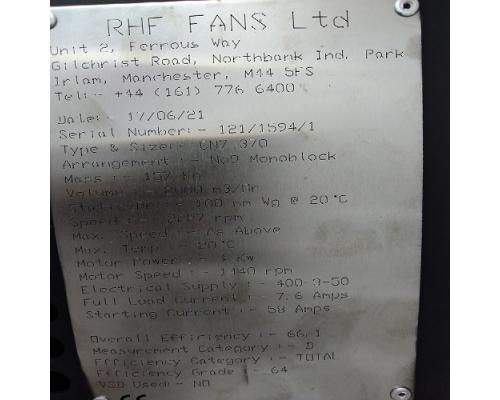 RHF FANS Ltd
Unit 2, Ferrous Way
Gilchrist Road, Northbank Ind. Park
Irlam, Manchester, M44 5FS
Tel:- +44 (161) 776 6400
Date:- 17/06/21
Serial Number:- 121/1594/1
Type & Size:- CN7 370
Arrangement :- No9 Monoblock
Mass :- 157 Kg
Volume :- m3/Hr
:- 100 mm Wg @ 20°C
Speed :- rpm
Max. Speed :- As Above
Max. Temp :- °C
Motor Power :- Kw
Motor Speed :- 1440 rpm
Electrical Supply :- 400-3-50
Full Load Current :- 7.6 Amps
Starting Current :- 58 Amps
Overall Efficiency :- 66.1
Measurement Category :- D
Efficiency Category :- TOTAL
Efficiency Grade :- 64
VSD Used:- NO